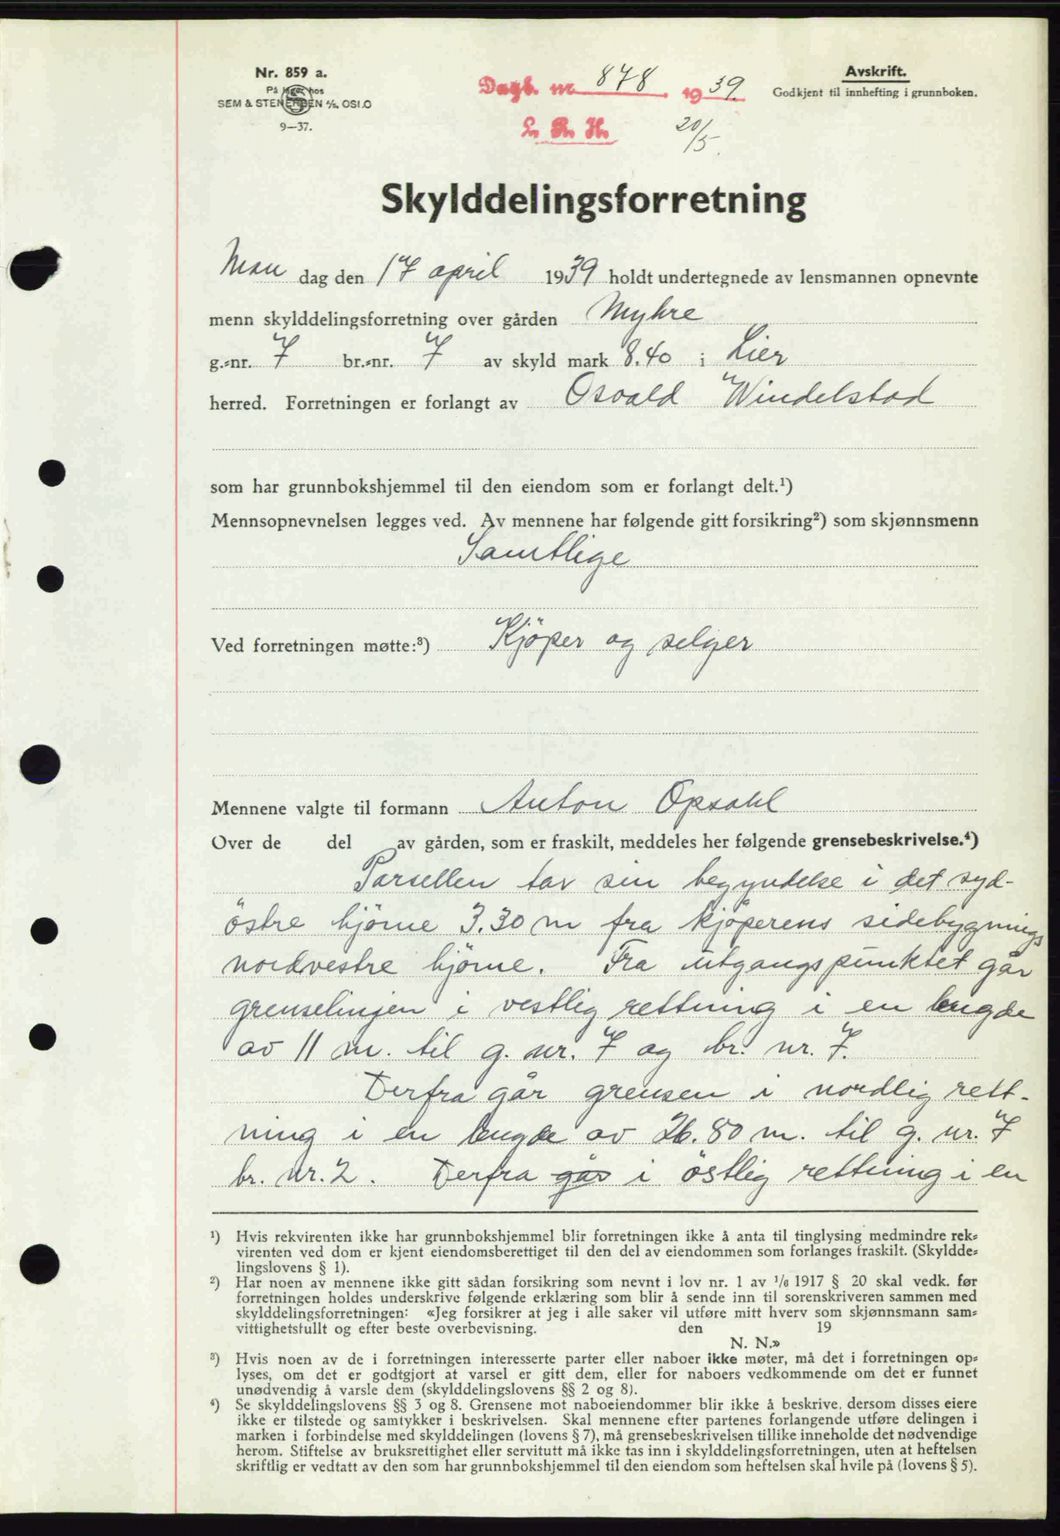 Nr. 859 a.
På lager hos
SEM & STENERSEN A/S, OSLO
9—37.
Dagb. nr. 878 1939
L. R. H. 20/5.
Avskrift.
Godkjent til innhefting i grunnboken.
Skylddelingsforretning
Man dag den 17 april 1939 holdt undertegnede av lensmannen opnevnte
menn skylddelingsforretning over gården Myhre
g.-nr. 7 br.-nr. 7 av skyld mark 8.40 i Lier
herred. Forretningen er forlangt av Osvald Windelstad
som har grunnbokshjemmel til den eiendom som er forlangt delt.¹)
Mennsopnevnelsen legges ved. Av mennene har følgende gitt forsikring²) som skjønnsmenn
Samtlige
Ved forretningen møtte:³) Kjöper og selger
Mennene valgte til formann Anton Opsahl
Over de del av gården, som er fraskilt, meddeles her følgende grensebeskrivelse.⁴)
Parsellen tar sin begyndelse i det syd-
östre hjörne 3.30 m fra kjöperens sidebygnings
nordvestre hjörne. Fra utgangspunktet går
grenselinjen i vestlig rettning i en lengde
av 11 m. til g. nr. 7 og br. nr. 7.
Derfra går grensen i nordlig rett-
ning i en lengde av 26.80 m. til g. nr. 7
br. nr. 2. Derfra går i östlig rettning i en
¹) Hvis rekvirenten ikke har grunnbokshjemmel blir forretningen ikke å anta til tinglysing medmindre rek-
virenten ved dom er kjent eiendomsberettiget til den del av eiendommen som forlanges fraskilt. (Skyldde-
lingslovens § 1).
²) Har noen av mennene ikke gitt sådan forsikring som nevnt i lov nr. 1 av 1/6 1917 § 20 skal vedk. før
forretningen holdes underskrive følgende erklæring som blir å sende inn til sorenskriveren sammen med
skylddelingsforretningen: «Jeg forsikrer at jeg i alle saker vil utføre mitt hverv som skjønnsmann sam-
vittighetsfullt og efter beste overbevisning. den 19
N. N.»
³) Hvis noen av de i forretningen interesserte parter eller naboer ikke møter, må det i forretningen op-
lyses, om det er godtgjort at varsel er gitt dem, eller for naboers vedkommende om det er funnet
unødvendig å varsle dem (skylddelingslovens §§ 2 og 8).
⁴) Se skylddelingslovens §§ 3 og 8. Grensene mot naboeiendommer blir ikke å beskrive, dersom disses eiere
ikke er tilstede og samtykker i beskrivelsen. Skal mennene efter partenes forlangende utføre delingen i
marken i forbindelse med skylddelingen (lovens § 7), må grensebeskrivelsen tillike inneholde det nødvendige
herom. Stiftelse av bruksrettighet eller servitutt må ikke tas inn i skylddelingsforretningen, uten at heftelsen
skriftlig er vedtatt av den som har grunnbokshjemmel til den eiendom som heftelsen skal hvile på (lovens § 5).